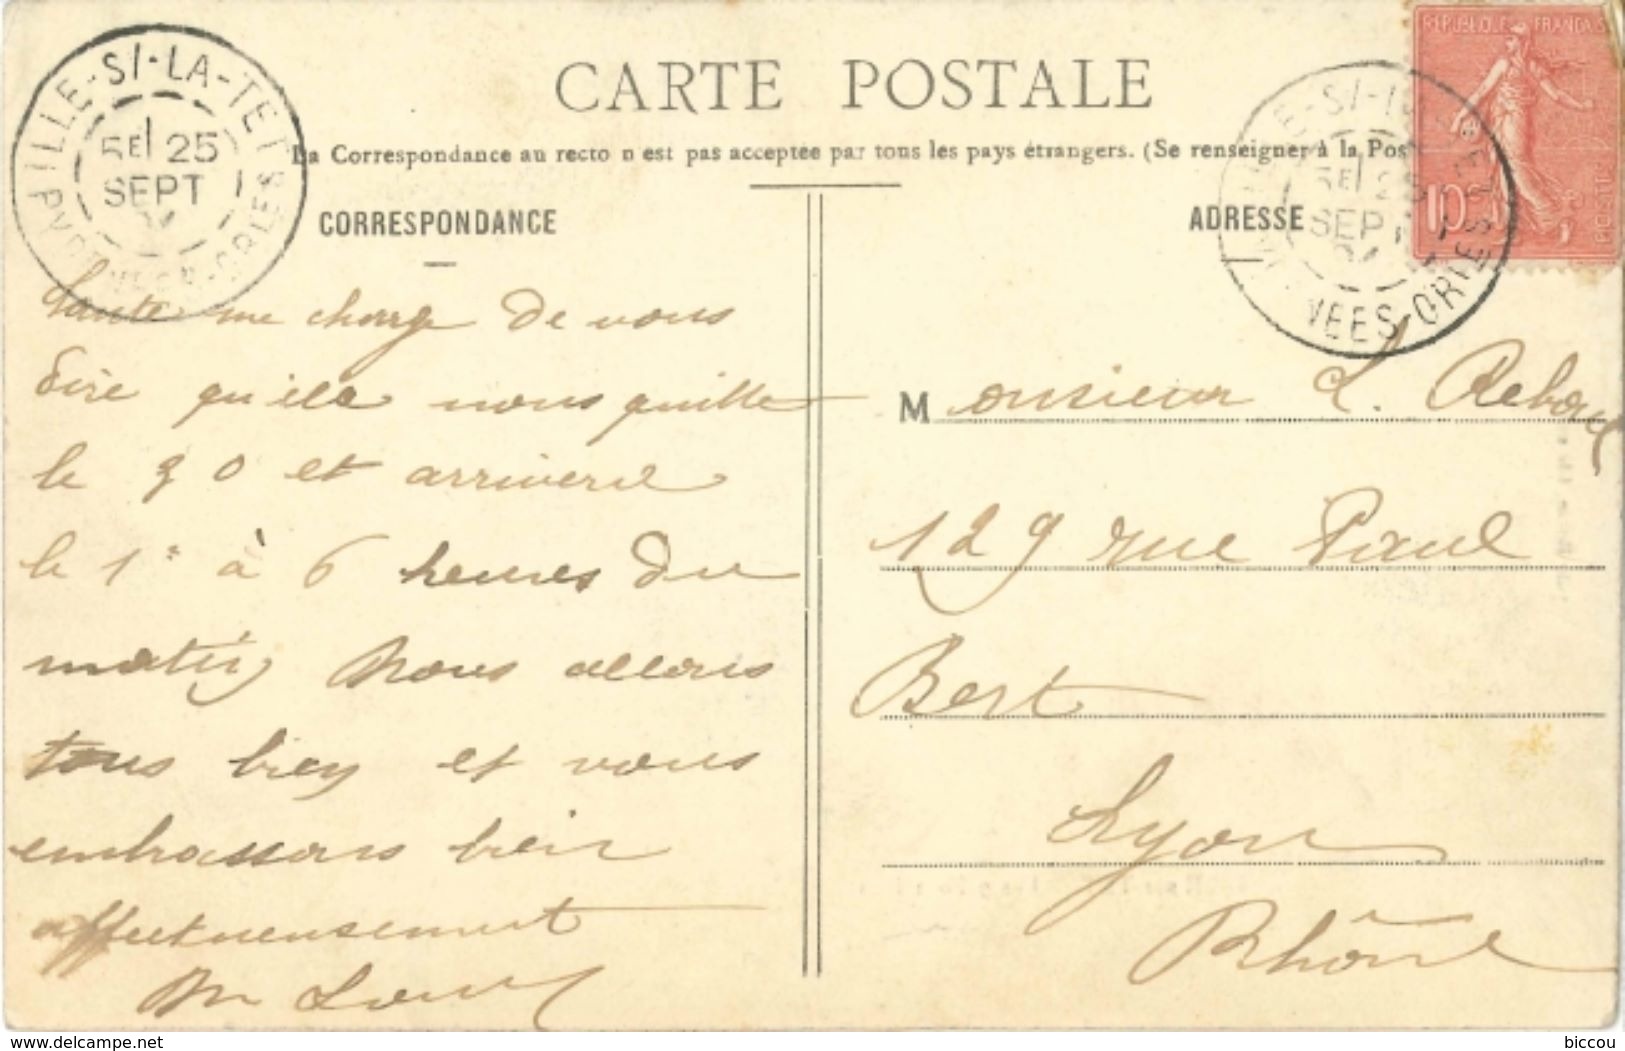 ILLE-S/-LA-TET
5E/25
SEPT
PYRÉNÉES-ORLES
CARTE POSTALE
La Correspondance au recto n'est pas acceptée par tous les pays étrangers. (Se renseigner à la Pos
CORRESPONDANCE
ADRESSE
REPUBLIQUE FRANÇAISE
10
POSTES
5E/25
SEPT
VEES-ORLES
me charge de vous
dire qu'elle nous quitte
le 30 et arrivera
le 1er à 6 heures du
matin Nous allons
tous bien et vous
embrassons bien
affectueusement
M
Monsieur L. Reboul
129 rue Paul
Bert
Lyon
Rhône
www.delcampe.net
biccou